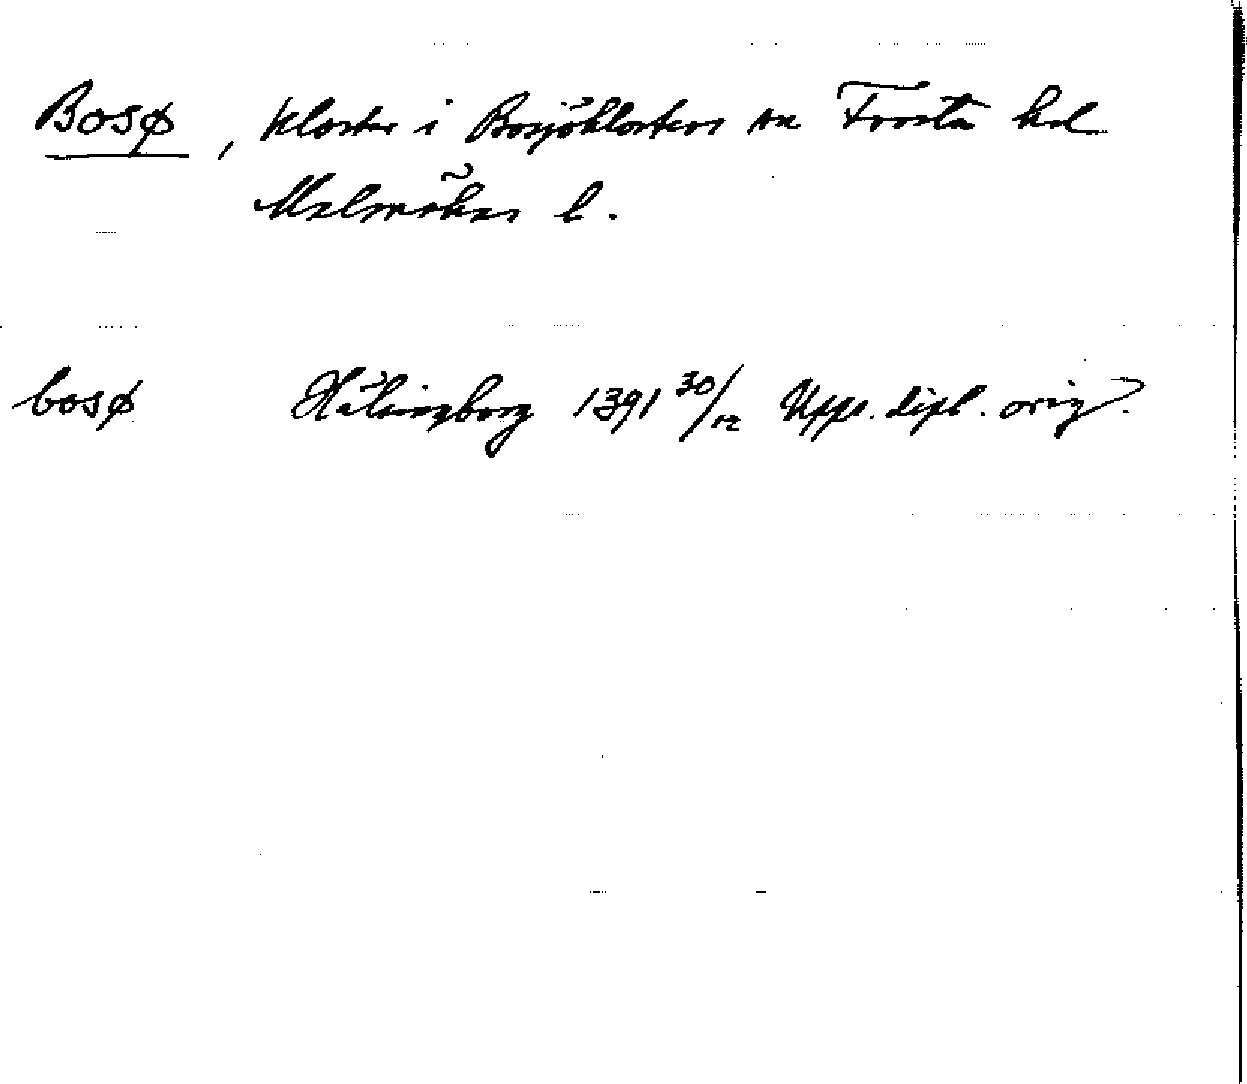 Bosø, kloster i Bosjöklosters sn Frosta hd
Malmöhus l.
bosø Hälsingborg 1391 30/12 Upps. dipl. orig.